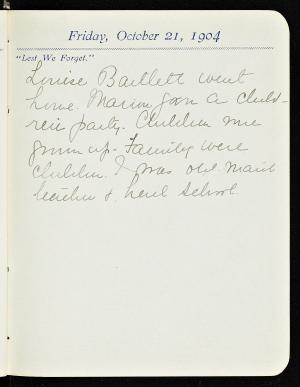 Friday, October 21, 1904
"Lest We Forget."
Louise Bartlett went
home. Marion gave a child-
ren party. Children were
grown up - Family were
children. I was old maid
teacher & held school.